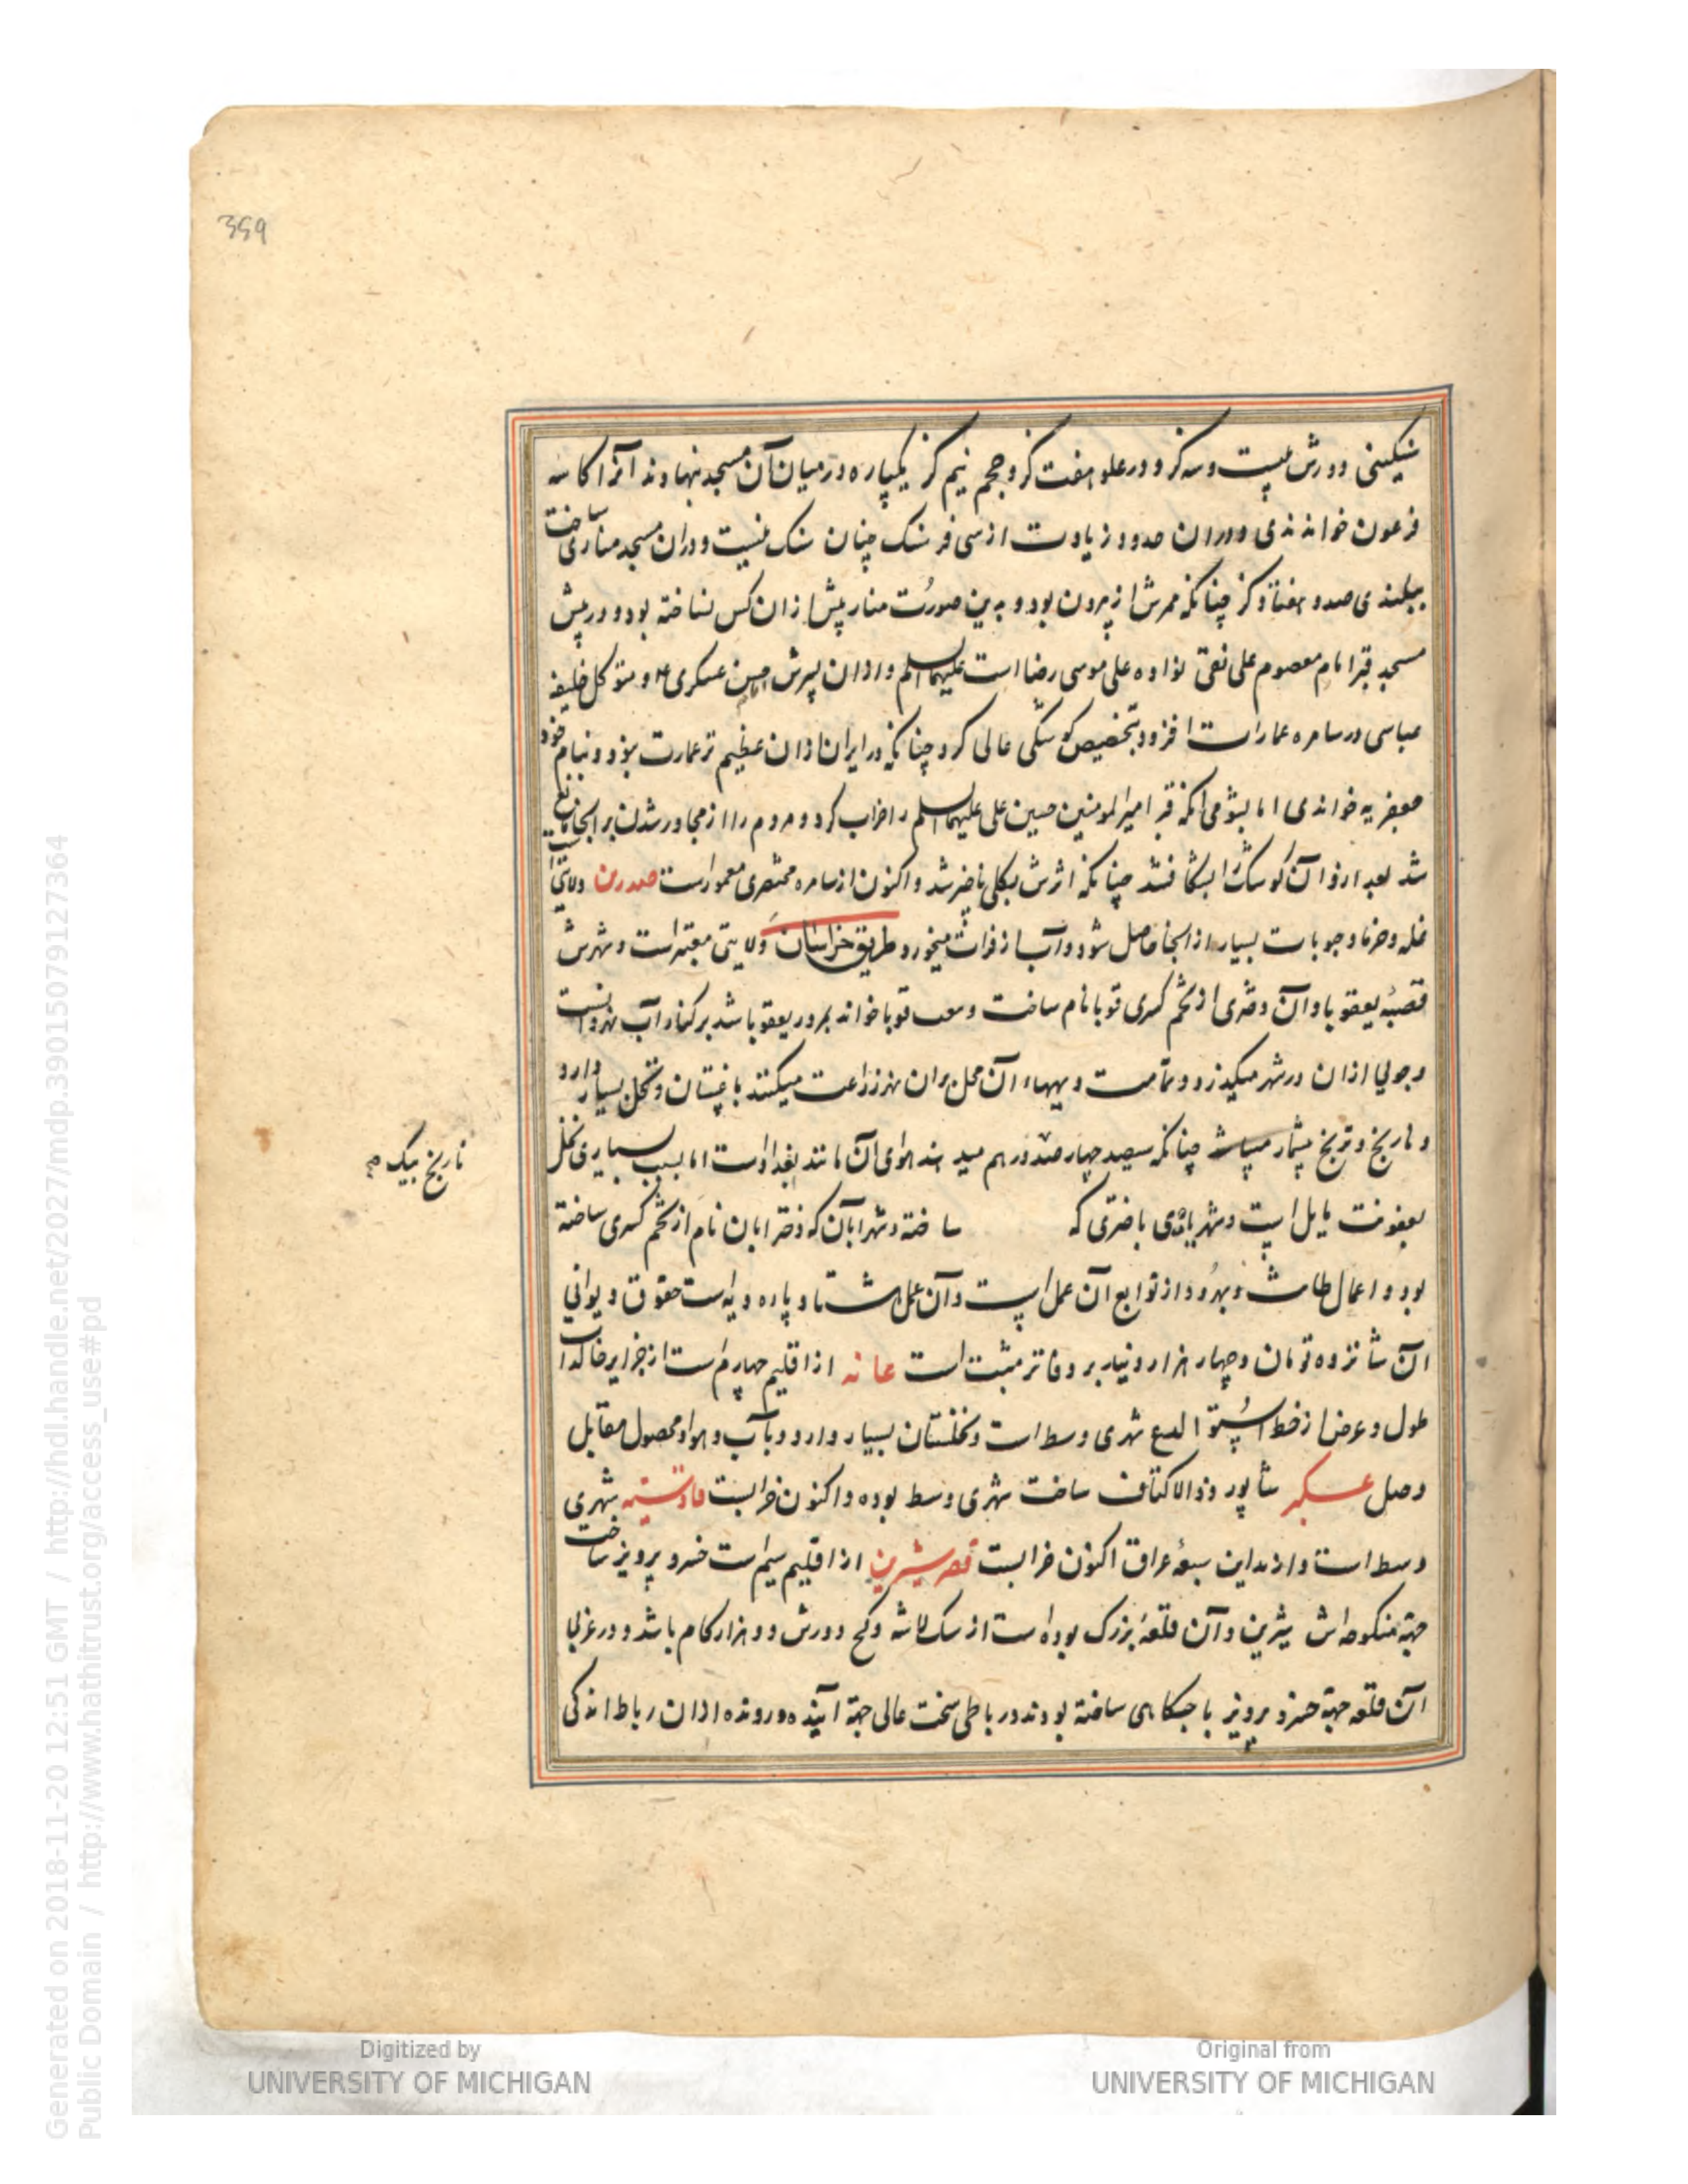 359
سنگینی دورش بیست و سه گز و در علو هفت گز و حجم نیم گز یکپاره در میان آن مسجد نهادند آنرا کاسه
فرعون خواندندی و در ان حدود زیادت از سی فرسنک چنان سنک نیست و دران مسجد مناری ساخت
ببلندی صد و هفتاد گز چنانکه ممرش از بیرون بود و بدین صورت منار پیش ازان کس نساخته بود و در پیش
مسجد قبر امام معصوم علی نقی نواده علی موسی رضا است علیهما السلم و ازان پسرش حسن عسکری و متوکل خلیفه
عباسی در سامره عمارات افزود بتخصیص کوشکی عالی کرد چنانکه در ایران ازان عظیم تر عمارت نبود و بنام خود
جعفریه خواندی اما بشومی آنکه قبر امیر المومنین حسین علی علیهما السلم را خراب کرد و مردم را از مجاور شدن بر انجا مانع
شد بعد ازو آن کوشک را بشکافتند چنانکه اثرش بکلی ناچیز شد و اکنون از سامره مختصری معمورست صدرین ولایتی است
غله و خرما و حبوبات بسیار از انجا حاصل شود و آب از فرات میخورد طریق خراسان ولایتی معتبر است و شهرش
قصبه یعقوبا و آن دختری از تخم کسری قوبا نام ساخت و قوبا خواند بمرور یعقوبا شد بر کنار آب نهروانست
و جویی ازان در شهر میگذرد و تمامت دیههاء آن محل بران نهر زراعت میکنند باغستان و نخل بسیار دارد
و نارنج و ترنج بیشمار میباشد چنانکه سیصد چهارصد درهم میدهند هوای آن مانند بغدادست اما بسبب بسیاری نخل
نارنج بیک
بعفونت مایل است و شهر بادی با دختری که ساخته و شهرابان که دختر ابان نام از تخم کسری ساخته
بود و اعمال طابث و مهرود از توابع آن عمل است و آن عمل هشتاد پاره دیه است حقوق دیوانی
آن شانزده تومان و چهار هزار دینار بر دفاتر مثبت است عانه از اقلیم چهارم است از جزایر خالدات
طول و عرض از خط استوا شهری وسط است و نخلستان بسیار دارد و باب و هوا و محصول مقابل
وصل عسکر شاپور ذوالاکتاف ساخت شهری وسط بوده و اکنون خرابست قادسیه شهری
وسط است و از مداین سبعهٔ عراق اکنون خرابست قصر شیرین از اقلیم سیم است خسرو پرویز ساخت
جهة منکوحه اش شیرین و آن قلعهٔ بزرک بوده است از سنک لاشه و گچ دورش دو هزار گام باشد و در غربی
آن قلعه جهة خسرو پرویز با جنگاهی ساخته بودند و رباطی سخت عالی جهة آینده و رونده ازان رباط اندکی
Generated on 2018-11-20 12:51 GMT / http://hdl.handle.net/2027/mdp.39015079127364
Public Domain / http://www.hathitrust.org/access_use#pd
Digitized by
UNIVERSITY OF MICHIGAN
Original from
UNIVERSITY OF MICHIGAN